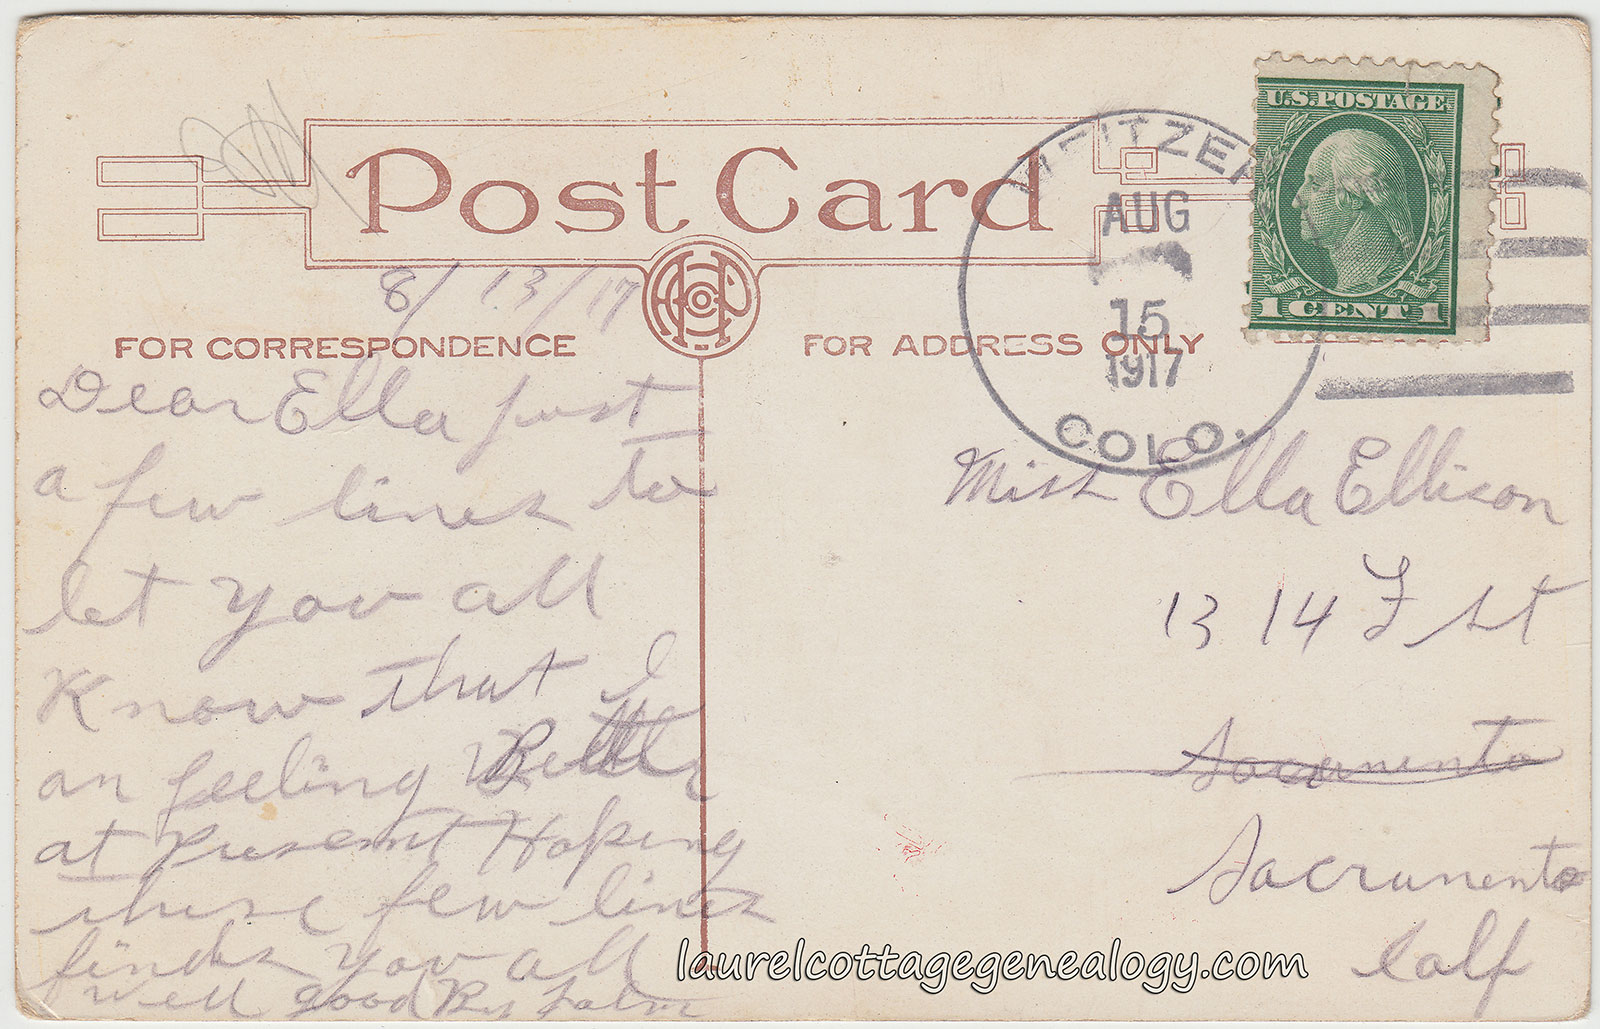 Post Card
U.S. POSTAGE
1 CENT 1
WEITZER
AUG
15
1917
COLO.
8/13/17
FOR CORRESPONDENCE
FOR ADDRESS ONLY
Dear Ella just
a few lines to
let you all
Know that I
an feeling Better
at Present Hoping
these few lines
finds you all
well good By
Miss Ella Ellison
1314 F St
Sacramento
Sacramento
Calf
laurelcottagegenealogy.com